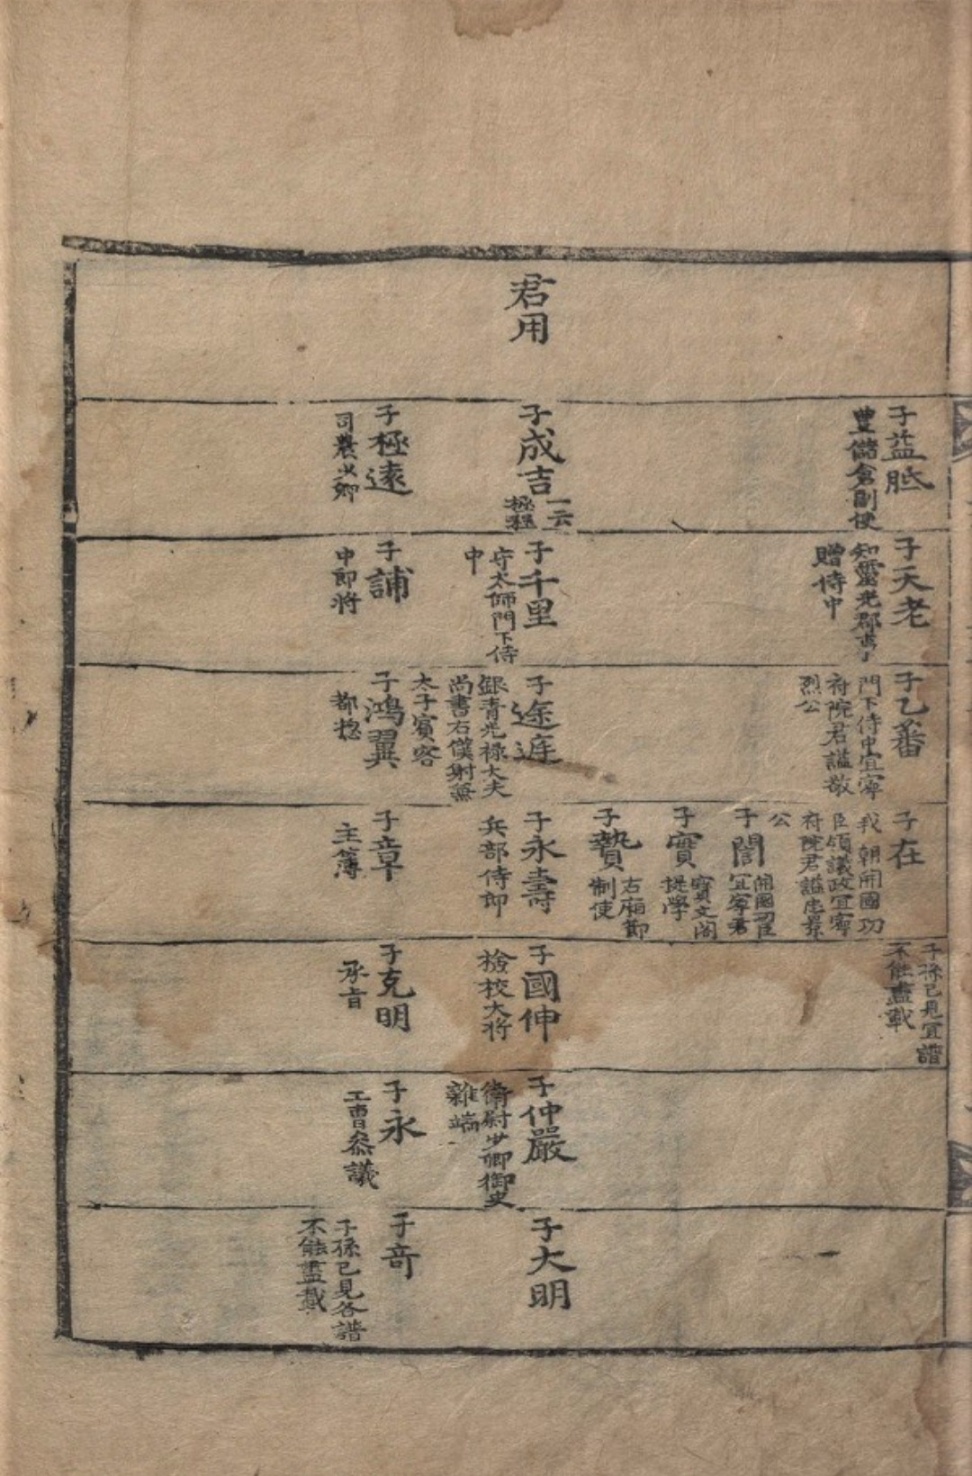 君用
子益胝
豊儲倉副使
子成吉
一云
極程
子極遠
司農少卿
子天老
知靈光郡事
贈侍中
子千里
守太師門下侍
中
子誧
中郎將
子乙蕃
門下侍中宜寧
府院君謚敬
烈公
子途遅
銀青光祿大夫
尚書右僕射兼
太子賓客
子鴻翼
都摠
子在
我 朝開國功
臣領議政宜寧
府院君謚忠景
公
子誾
開國功臣
宜寧君
子實
寶文閣
提學
子贄
右廂節
制使
子永壽
兵部侍郎
子章
主簿
子孫已見宜譜
不能盡載
子國伸
檢校大將
子克明
承旨
子仲嚴
衛尉少卿御史
雜端
子永
工曹叅議
子大明
子奇
子孫已見各譜
不能盡載